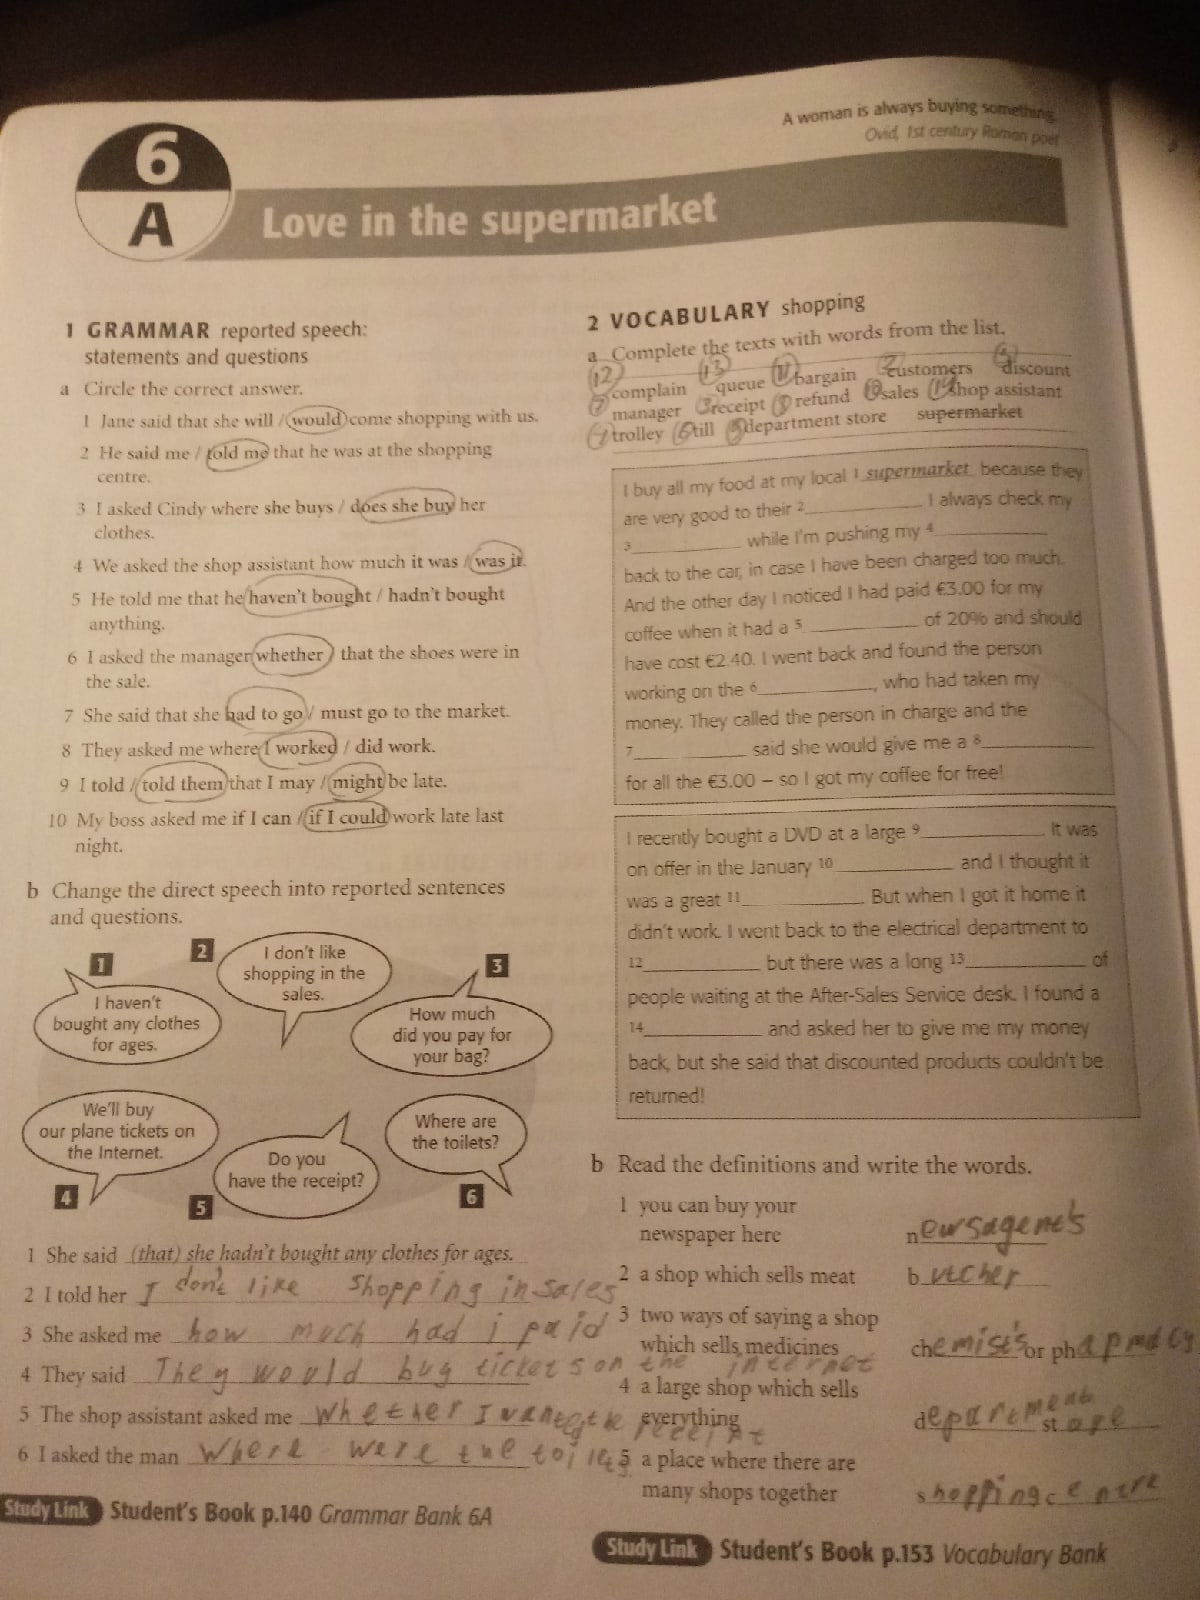 A woman is always buying something.
Ovid, 1st century Roman poet
6
A
Love in the supermarket
1 GRAMMAR reported speech:
statements and questions
a Circle the correct answer.
1 Jane said that she will / would come shopping with us.
2 He said me / told me that he was at the shopping
centre.
3 I asked Cindy where she buys / does she buy her
clothes.
4 We asked the shop assistant how much it was / was it.
5 He told me that he haven't bought / hadn't bought
anything.
6 I asked the manager whether / that the shoes were in
the sale.
7 She said that she had to go / must go to the market.
8 They asked me where I worked / did work.
9 I told / told them that I may / might be late.
10 My boss asked me if I can / if I could work late last
night.
b Change the direct speech into reported sentences
and questions.
1
I haven't
bought any clothes
for ages.
2
I don't like
shopping in the
sales.
3
How much
did you pay for
your bag?
We'll buy
our plane tickets on
the Internet.
4
Do you
have the receipt?
5
Where are
the toilets?
6
1 She said (that) she hadn't bought any clothes for ages.
2 I told her I don't like shopping in sales
3 She asked me how much had i paid
4 They said They would buy tickets on the internet
5 The shop assistant asked me whether I wanted the receipt
6 I asked the man where were the toilets
Study Link Student's Book p.140 Grammar Bank 6A
2 VOCABULARY shopping
a Complete the texts with words from the list.
12 13 11 2 5
complain queue bargain customers discount
7 3 8 10 14
manager receipt refund sales shop assistant
4 6 9
trolley till department store supermarket
I buy all my food at my local 1 supermarket because they
are very good to their 2 . I always check my
3 while I'm pushing my 4
back to the car, in case I have been charged too much.
And the other day I noticed I had paid €3.00 for my
coffee when it had a 5 of 20% and should
have cost €2.40. I went back and found the person
working on the 6 , who had taken my
money. They called the person in charge and the
7 said she would give me a 8
for all the €3.00 – so I got my coffee for free!
I recently bought a DVD at a large 9 . It was
on offer in the January 10 and I thought it
was a great 11 . But when I got it home it
didn't work. I went back to the electrical department to
12 but there was a long 13 of
people waiting at the After-Sales Service desk. I found a
14 and asked her to give me my money
back, but she said that discounted products couldn't be
returned!
b Read the definitions and write the words.
1 you can buy your
newspaper here newsagent's
2 a shop which sells meat butcher
3 two ways of saying a shop
which sells medicines chemist's or pharmacy
4 a large shop which sells
everything department store
5 a place where there are
many shops together shopping centre
Study Link Student's Book p.153 Vocabulary Bank